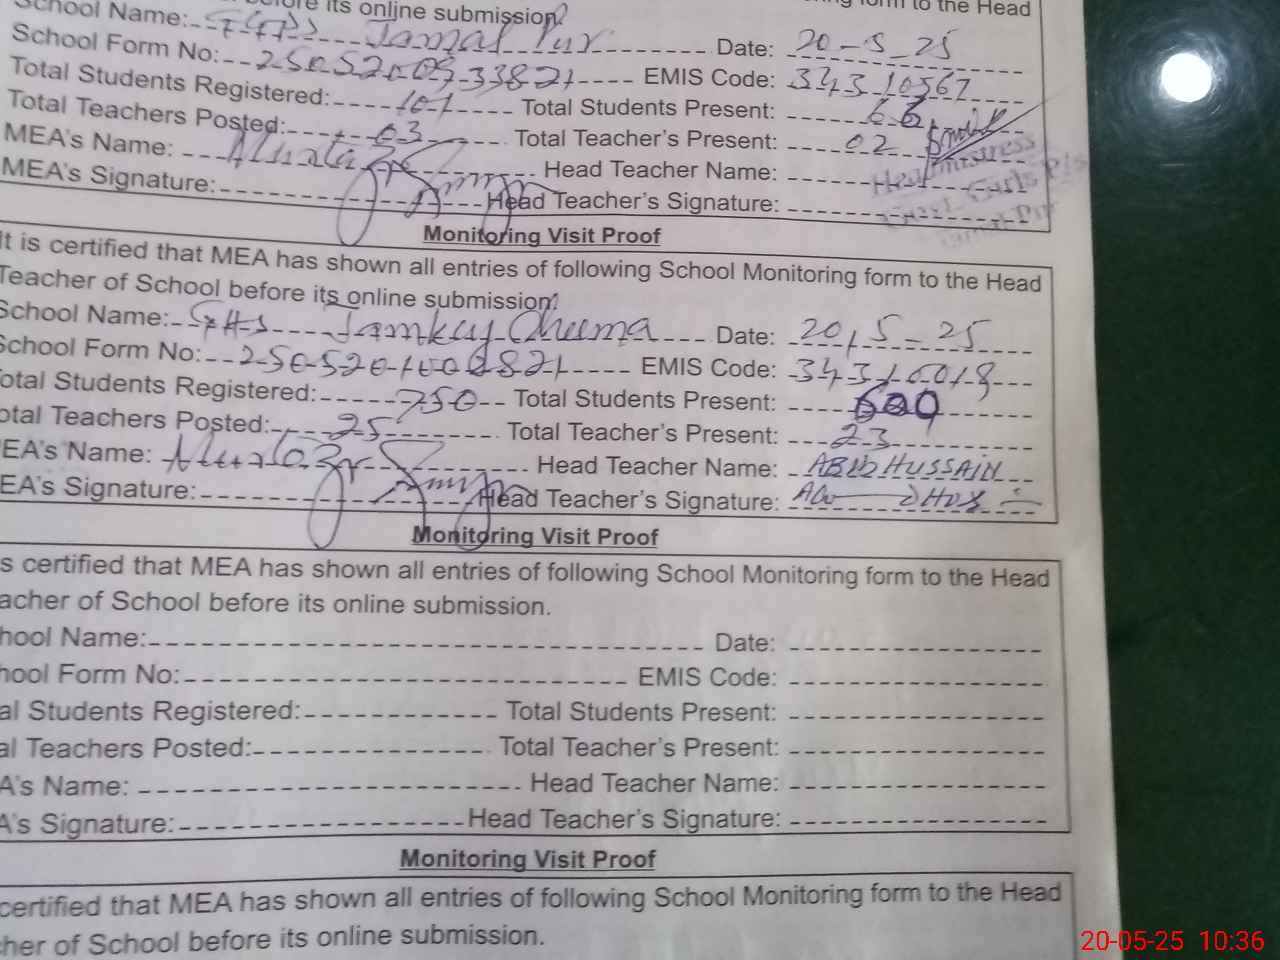 before its online submission
to the Head
School Name: Jamal Pur Date: 20-5-25
School Form No: 2505200933821 EMIS Code: 34310567
Total Students Registered: 101 Total Students Present: 66
Total Teachers Posted: 03 Total Teacher's Present: 02
MEA's Name: Head Teacher Name: Headmistress
MEA's Signature: Head Teacher's Signature:
Monitoring Visit Proof
It is certified that MEA has shown all entries of following School Monitoring form to the Head
Teacher of School before its online submission
School Name: GHS Jamkay Cheema Date: 20-5-25
School Form No: EMIS Code: 34310018
Total Students Registered: 750 Total Students Present: 600
Total Teachers Posted: 25 Total Teacher's Present: 23
EA's Name: Head Teacher Name: HUSSAIN
EA's Signature: Head Teacher's Signature:
Monitoring Visit Proof
s certified that MEA has shown all entries of following School Monitoring form to the Head
acher of School before its online submission.
hool Name: Date:
hool Form No: EMIS Code:
al Students Registered: Total Students Present:
al Teachers Posted: Total Teacher's Present:
A's Name: Head Teacher Name:
A's Signature: Head Teacher's Signature:
Monitoring Visit Proof
certified that MEA has shown all entries of following School Monitoring form to the Head
cher of School before its online submission.
20-05-25 10:36